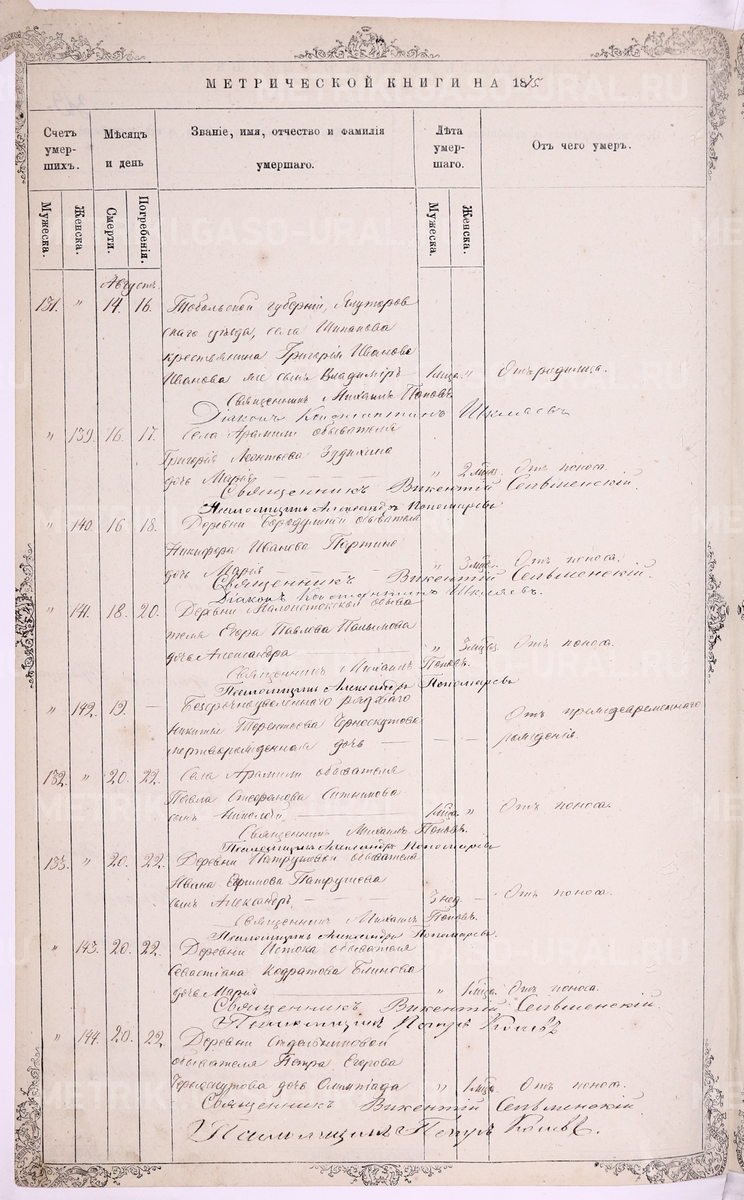 МЕТРИЧЕСКОЙ КНИГИ НА 1875
Счетъ умер- шихъ.
Мѣсяцъ и день
Званіе, имя, отчество и фамилія умершаго.
Лѣта умер- шаго.
Отъ чего умеръ.
Мужеска.
Женска.
Смерти.
Погребенія.
Мужеска.
Женска.
Августъ
131. " 14. 16. Тобольской губерніи, Ялуторов
скаго уѣзда, села Шипакова
крестьянина Григорія Иванова
Иванова же сынъ Владиміръ 1 мѣсц. " Отъ родимца.
Священникъ Михаилъ Поповъ.
Діаконъ Константинъ Шкляевъ
" 139. 16. 17. Села Арамили обывателя
Григорія Леонтьева Зудихина
дочь Марія " 2 мѣсц. Отъ поноса.
Священникъ Викентій Сельменскій.
Псаломщикъ Александръ Пономаревъ
" 140. 16 18. Деревни Бородулиной обывателя
Никифора Иванова Паргина
дочь Марія " 3 мѣсц. Отъ поноса.
Священникъ Викентій Сельменскій.
Діаконъ Константинъ Шкляевъ.
" 141. 18. 20. Деревни Малоистокской обыва
теля Егора Павлова Папымова
дочь Александра " 3 мѣсц. Отъ поноса.
Священникъ Михаилъ Поповъ.
Псаломщикъ Александръ Пономаревъ
" 142. 19. — Безсрочноуволеннаго рядоваго
Никиты Терентьева Черноскутова
мертворожденная дочь — — — Отъ преждевременнаго
рожденія.
132. " 20. 22. Села Арамили обывателя
Павла Стефанова Ситникова
сынъ Николай 1 мѣсц. " Отъ поноса.
Священникъ Михаилъ Поповъ.
Псаломщикъ Александръ Пономаревъ
133. " 20. 22. Деревни Патрушевой обывателя
Ивана Ефимова Патрушева
сынъ Александръ 3 нед. — Отъ поноса.
Священникъ Михаилъ Поповъ.
Псаломщикъ Александръ Пономаревъ.
" 143. 20. 22. Деревни Истока обывателя
Севастіана Кодратова Блинова
дочь Марія " 1 мѣсц. Отъ поноса.
Священникъ Викентій Сельменскій.
Псаломщикъ Петръ
" 144. 20. 22. Деревни Сидельниковой
обывателя Петра Егорова
Черноскутова дочь Олимпіада " 1 мѣсц. Отъ поноса.
Священникъ Викентій Сельменскій.
Псаломщикъ Петръ